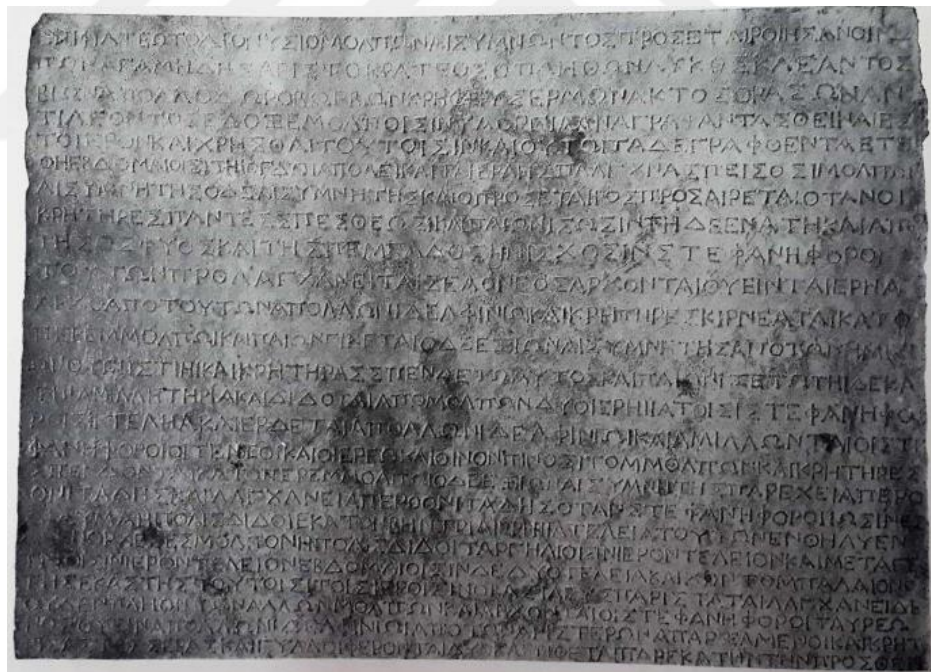 ΤΕΩΤΟΔΙΟΝΥΣΙΟΜΟΛΠΩΝΑΙΣΥΜΝΩΝΤΟΣΠΡΟΣΕΤΑΙΡΟΙΗΣΑΝΟΙΝ
ΠΩΝΑΓΑΜΗΔΗΣΑΡΙΣΤΟΚΡΑΤΕΟΣΟΠΛΗΘΩΝΛΥΚΟΣΚΛΕΑΝΤΟΣ
ΒΙΩΝΑΠΟΛΛΟΔΩΡΟΒΩΡΩΝΚΡΗΘΕΥΣΕΡΜΩΝΑΚΤΟΣΘΡΑΣΩΝΑΝ
ΤΙΛΕΟΝΤΟΣΕΔΟΞΕΜΟΛΠΟΙΣΙΝΤΑΟΡΓΙΑΑΝΑΓΡΑΨΑΝΤΑΣΘΕΙΝΑΙΕΣ
ΤΟΙΕΡΟΝΚΑΙΧΡΗΣΘΑΙΤΟΥΤΟΙΣΙΝΚΑΙΟΥΤΩΤΑΔΕΓΡΑΦΘΕΝΤΑΕΤΕ
ΘΗΕΒΔΟΜΑΙΟΙΣΙΤΗΙΟΓΔΟΗΙΑΠΟΛΕΙΚΑΝΤΑΙΕΡΑΗΣΠΛΑΓΧΝΑΣΠΕΙΣΟΣΙΜΟΛΠΩΝ
ΑΙΣΥΜΝΗΤΗΣΟΔΕΑΙΣΥΜΝΗΤΗΣΚΑΙΟΠΡΟΣΕΤΑΙΡΟΣΠΡΟΣΑΙΡΕΤΑΙΟΤΑΝΟΙ
ΚΡΗΤΗΡΕΣΠΑΝΤΕΣΣΠΕΣΘΕΩΣΙΚΑΙΠΑΙΩΝΙΣΩΣΙΝΤΗΙΔΕΕΝΑΤΗΙΚΑΙΑΠΟ
ΤΗΣΟΣΦΥΟΣΚΑΙΤΗΣΠΕΜΠΑΔΟΣΗΝΙΣΧΟΣΙΝΣΤΕΦΑΝΗΦΟΡΟΙ
ΤΟΥΤΩΝΠΡΟΛΑΓΧΑΝΕΙΤΑΙΣΑΟΝΕΟΣΑΡΧΟΝΤΑΙΘΥΕΙΝΤΑΙΕΡΗΙΑ
ΑΡΧΟΑΠΟΤΟΥΤΩΝΑΠΟΛΛΩΝΙΔΕΛΦΙΝΙΩΙΚΑΙΚΡΗΤΗΡΕΣΚΙΡΝΕΑΤΑΙΚΑΤΟ
ΠΕΡΕΜΜΟΛΠΩΙΚΑΙΠΑΙΩΝΓΙΝΕΤΑΙΟΔΕΕΞΙΩΝΑΙΣΥΜΝΗΤΗΣΑΠΟΤΩΝΗΜΙΣΕ
ΩΝΘΥΕΙΙΣΤΙΗΙΚΑΙΚΡΗΤΗΡΑΣΣΠΕΝΔΕΤΩΑΥΤΟΣΚΑΙΠΑΙΩΝΙΖΕΤΩΤΗΙΔΕΚΑ
ΤΗΙΑΜΙΛΛΗΤΗΡΙΑΚΑΙΔΙΔΟΤΑΙΑΠΟΜΟΛΠΩΝΔΥΟΙΕΡΗΙΑΤΟΙΣΙΣΤΕΦΑΝΗΦΟ
ΡΟΙΣΙΤΕΛΗΑΚΑΙΕΡΔΕΤΑΙΑΠΟΛΛΩΝΙΔΕΛΦΙΝΙΩΙΚΑΙΑΜΙΛΛΩΝΤΑΙΟΙΣΤΕ
ΦΑΝΗΦΟΡΟΙΟΙΤΕΝΕΟΙΚΑΙΟΙΕΡΕΩΚΑΙΟΙΝΟΝΠΙΝΟΣΙΤΟΜΜΟΛΠΩΝΚΑΙΚΡΗΤΗΡΕΣ
ΣΠΕΝΔΟΝΤΑΙΚΑΤΟΠΕΡΕΜΜΟΛΠΩΙΟΔΕΕΞΙΩΝΑΙΣΥΜΝΗΤΗΣΠΑΡΕΧΕΙΑΠΕΡΟ
ΟΝΙΤΑΔΗΣΚΑΙΛΑΓΧΑΝΕΙΑΠΕΡΟΟΝΙΤΑΔΗΣΟΤΑΝΣΤΕΦΑΝΗΦΟΡΟΙΙΩΣΙΝΕΣ
ΔΙΔΥΜΑΗΠΟΛΙΣΔΙΔΟΙΕΚΑΤΟΝΒΗΝΤΡΙΑΙΕΡΗΙΑΤΕΛΕΙΑΤΟΥΤΩΝΕΝΘΗΛΥΕΝ
ΕΝΟΡΧΕΣΕΣΜΟΛΠΟΝΗΠΟΛΙΣΔΙΔΟΙΤΑΡΓΗΛΙΟΙΣΙΝΙΕΡΟΝΤΕΛΕΙΟΝΚΑΙΜΕΤΑΓΕΙ
ΤΝΙΟΙΣΙΝΙΕΡΟΝΤΕΛΕΙΟΝΕΒΔΟΜΑΙΟΙΣΙΝΔΕΔΥΟΤΕΛΕΙΑΚΑΙΧΟΝΤΟΜΠΑΛΑΙΟΝ
ΟΡΤΗΣΕΚΑΣΤΗΣΤΟΥΤΟΙΣΙΤΟΙΣΙΕΡΟΙΣΙΝΟΒΑΣΙΛΕΥΣΠΑΡΙΣΤΑΤΑΙΛΑΓΧΑΝΕΙΔΕ
ΟΥΔΕΝΠΛΗΟΝΤΩΝΑΛΛΩΝΜΟΛΠΩΝΚΑΙΑΡΧΟΝΤΑΙΟΙΣΤΕΦΑΝΗΦΟΡΟΙΤΑΥΡΕΩ
ΝΟΣΘΥΕΙΝΑΠΟΛΛΩΝΙΔΕΛΦΙΝΙΩΙΑΠΟΤΩΝΑΡΙΣΤΕΡΩΝΑΠΑΡΞΑΜΕΝΟΙΚΑΙΚΡΗΤΗ
ΤΕΣΣΕΡΑΣΚΑΙΓΥΛΛΟΙΦΕΡΟΝΤΑΙΔΥΟΚΑΙΤΙΘΕΤΑΙΠΑΡΕΚΑΤΗΝΤΗΝΠΡΟ